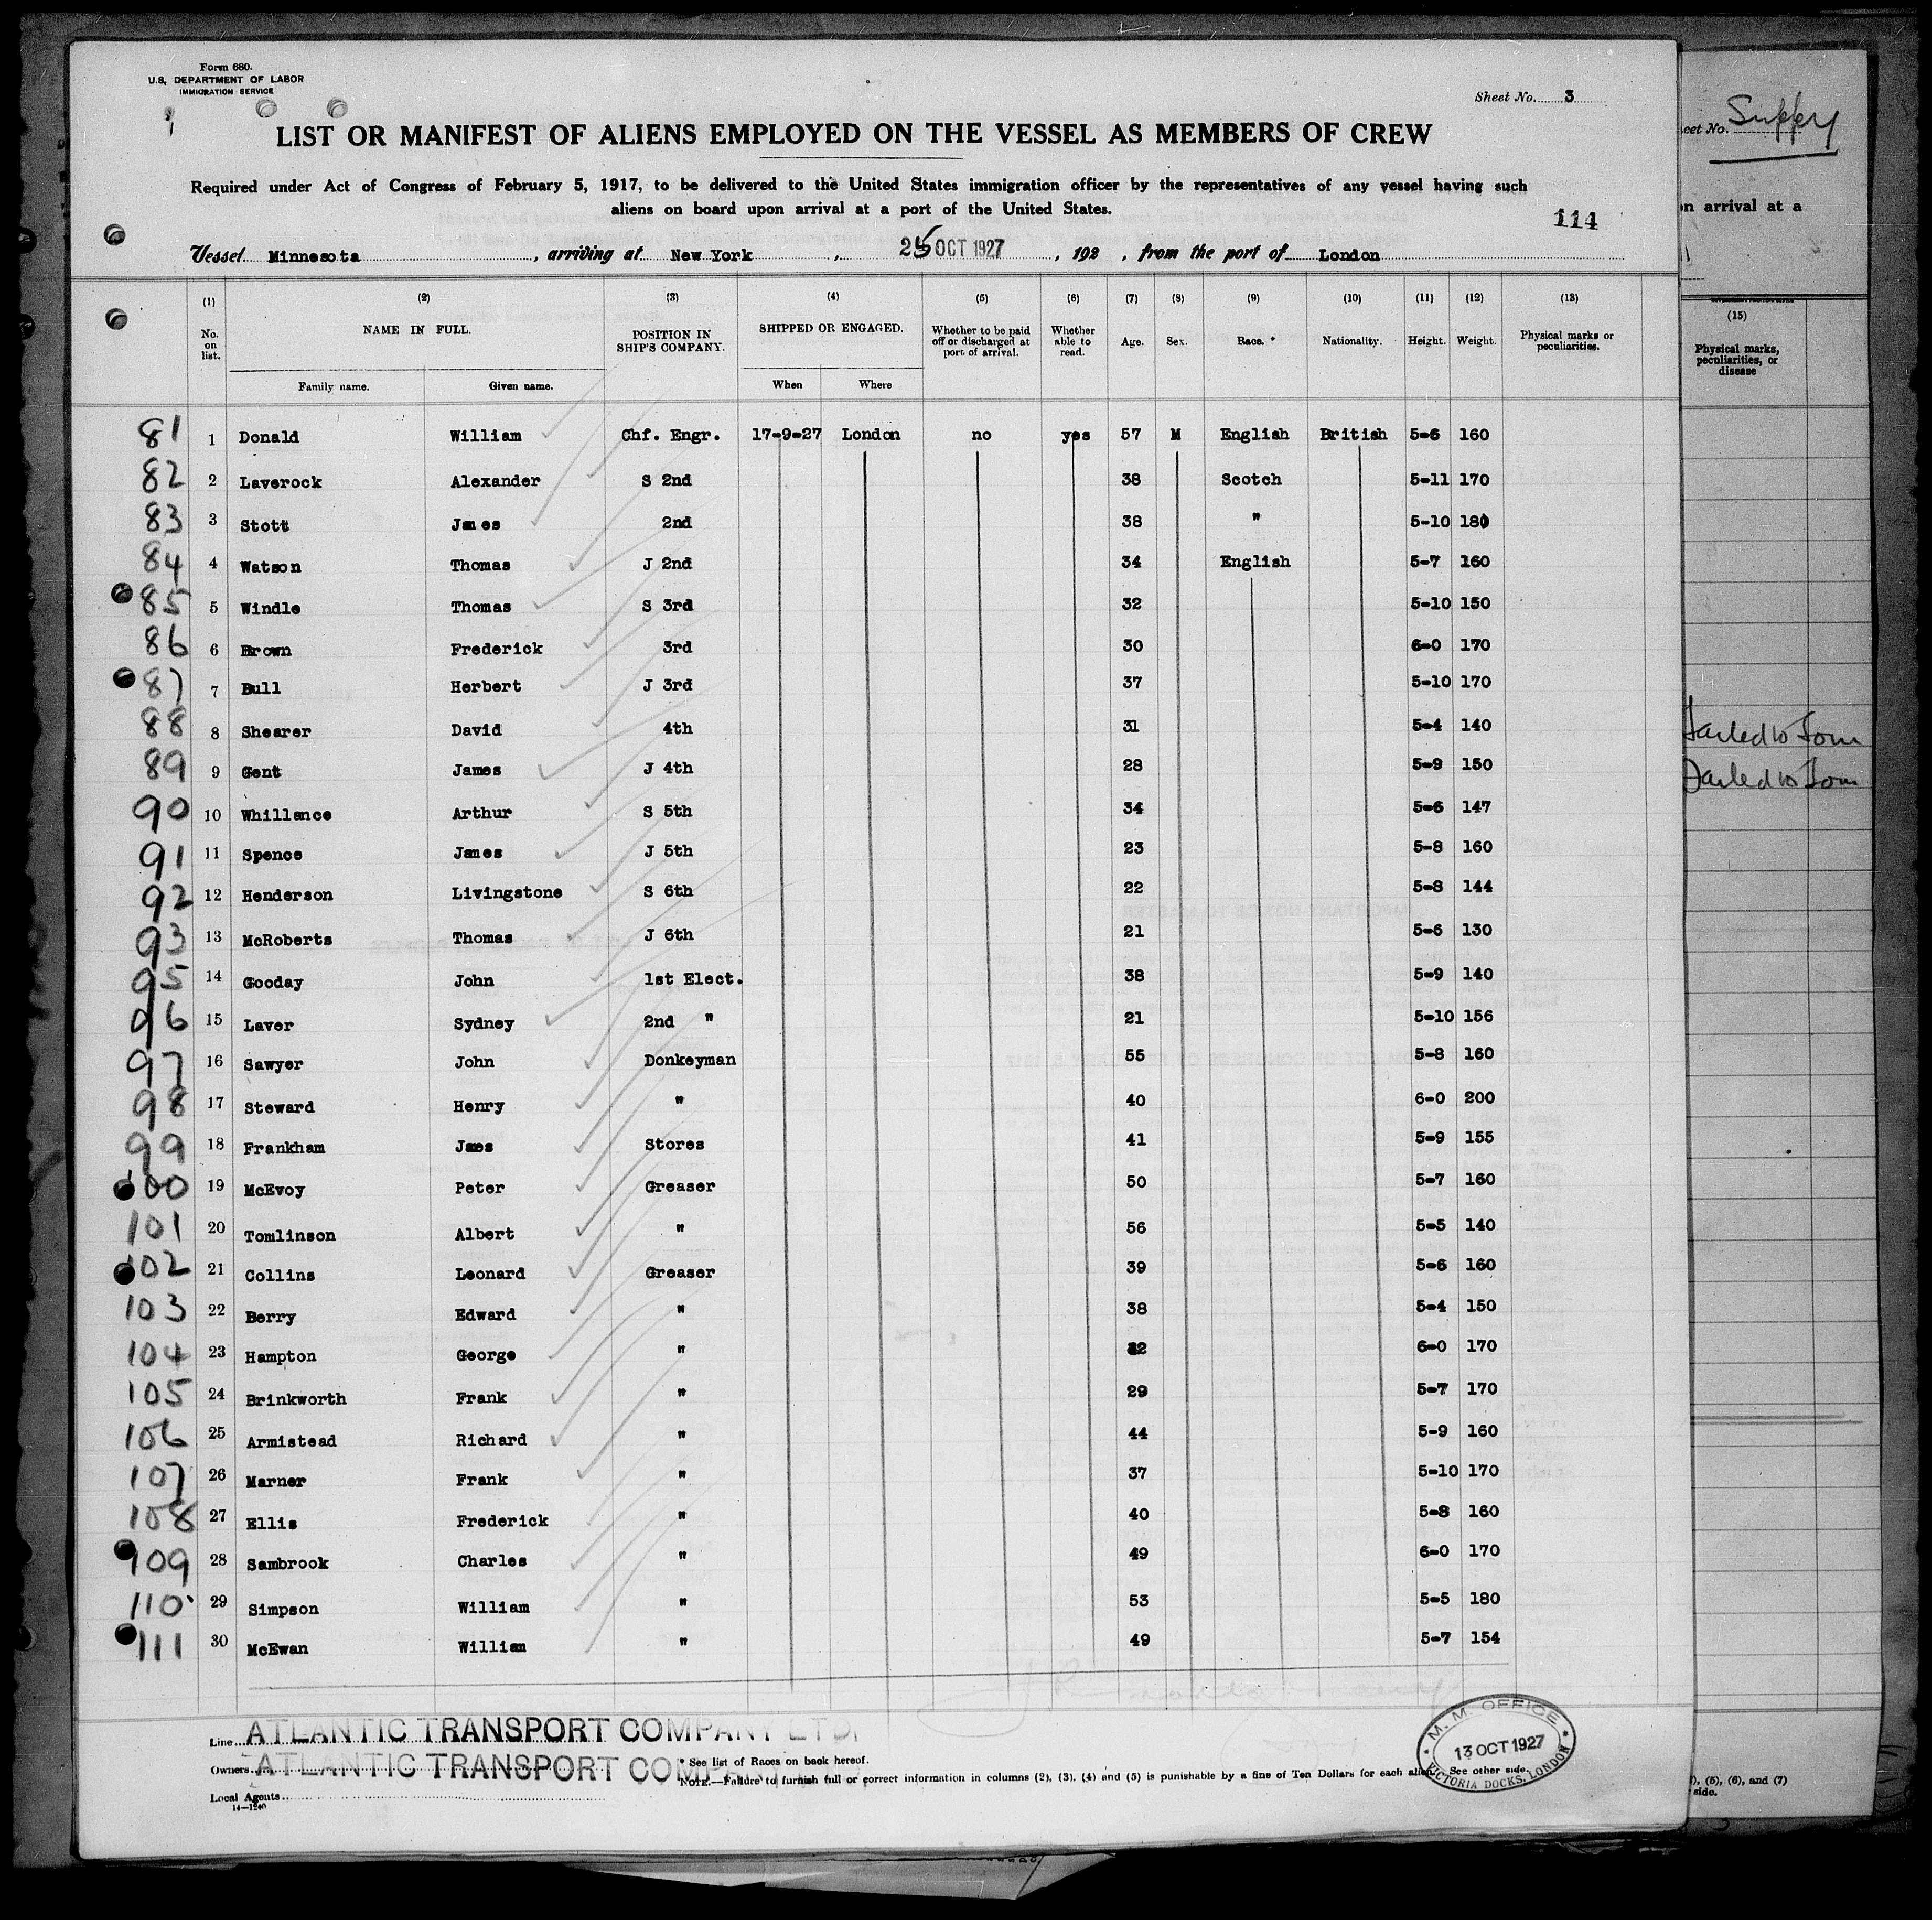 Form 680.
U.S. DEPARTMENT OF LABOR
IMMIGRATION SERVICE
Sheet No. 3
LIST OR MANIFEST OF ALIENS EMPLOYED ON THE VESSEL AS MEMBERS OF CREW
Required under Act of Congress of February 5, 1917, to be delivered to the United States immigration officer by the representatives of any vessel having such
aliens on board upon arrival at a port of the United States.
114
Vessel Minnesota, arriving at New York, 25 OCT 1927, 192 , from the port of London
(1) (2) (3) (4) (5) (6) (7) (8) (9) (10) (11) (12) (13)
No. on list. NAME IN FULL. POSITION IN SHIP'S COMPANY. SHIPPED OR ENGAGED. Whether to be paid off or discharged at port of arrival. Whether able to read. Age. Sex. Race.* Nationality. Height. Weight. Physical marks or peculiarities.
Family name. Given name. When Where
81 1 Donald William Chf. Engr. 17-9-27 London no yes 57 M English British 5-6 160
82 2 Laverock Alexander S 2nd 38 Scotch 5-11 170
83 3 Stott James 2nd 38 " 5-10 180
84 4 Watson Thomas J 2nd 34 English 5-7 160
85 5 Windle Thomas S 3rd 32 5-10 150
86 6 Brown Frederick 3rd 30 6-0 170
87 7 Bull Herbert J 3rd 37 5-10 170
88 8 Shearer David 4th 31 5-4 140
89 9 Gent James J 4th 28 5-9 150
90 10 Whillance Arthur S 5th 34 5-6 147
91 11 Spence James J 5th 23 5-8 160
92 12 Henderson Livingstone S 6th 22 5-8 144
93 13 McRoberts Thomas J 6th 21 5-6 130
95 14 Gooday John 1st Elect. 38 5-9 140
96 15 Laver Sydney 2nd " 21 5-10 156
97 16 Sawyer John Donkeyman 55 5-8 160
98 17 Steward Henry " 40 6-0 200
99 18 Frankham James Stores 41 5-9 155
100 19 McEvoy Peter Greaser 50 5-7 160
101 20 Tomlinson Albert " 56 5-5 140
102 21 Collins Leonard Greaser 39 5-6 160
103 22 Berry Edward " 38 5-4 150
104 23 Hampton George " 6-0 170
105 24 Brinkworth Frank " 29 5-7 170
106 25 Armistead Richard " 44 5-9 160
107 26 Marner Frank " 37 5-10 170
108 27 Ellis Frederick " 40 5-8 160
109 28 Sambrook Charles " 49 6-0 170
110 29 Simpson William " 53 5-5 180
111 30 McEwan William " 49 5-7 154
Line ATLANTIC TRANSPORT COMPANY LTD.
Owners ATLANTIC TRANSPORT COMPAN
Local Agents
14—1240
* See list of Races on back hereof.
NOTE.—Failure to furnish full or correct information in columns (2), (3), (4) and (5) is punishable by a fine of Ten Dollars for each alien. See other side.
M. M. OFFICE
13 OCT 1927
VICTORIA DOCKS, LONDON
eet No.
n arrival at a
(15)
Physical marks, peculiarities, or disease
Failed to Join
Failed to Join
), (5), (6), and (7)
side.